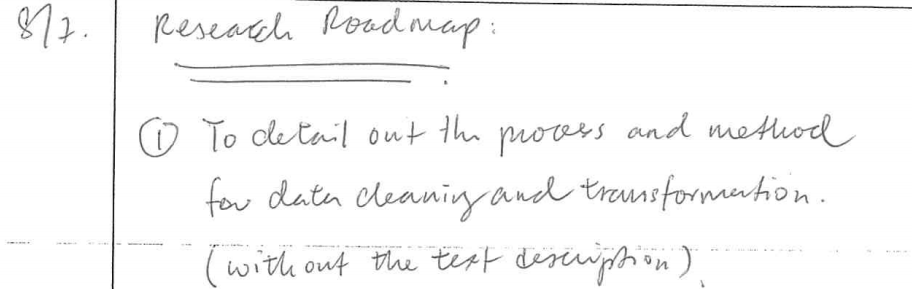 8/7.
Research Roadmap:
① To detail out the process and method
for data cleaning and transformation.
(without the text description)